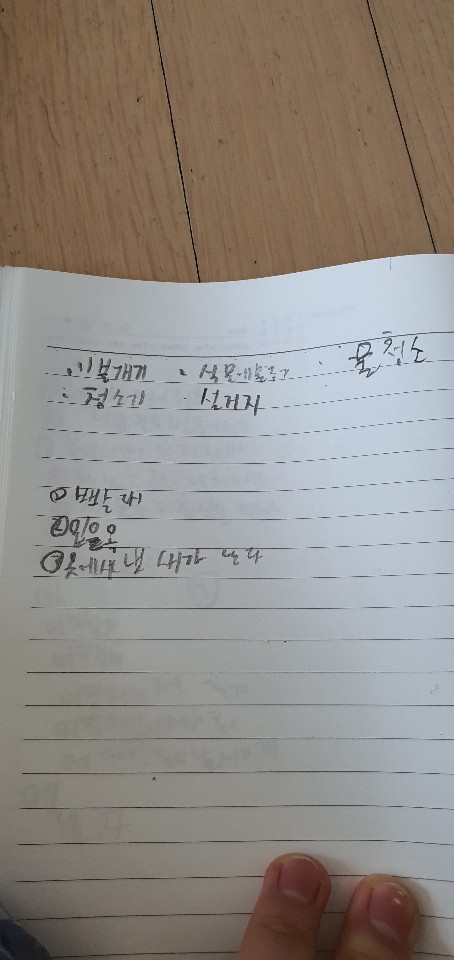 · 이불개기 · 식물에물주기 · 물청소
· 청소기 · 설거지
① 빨래
②
③ 옷에서 냄새가 난다